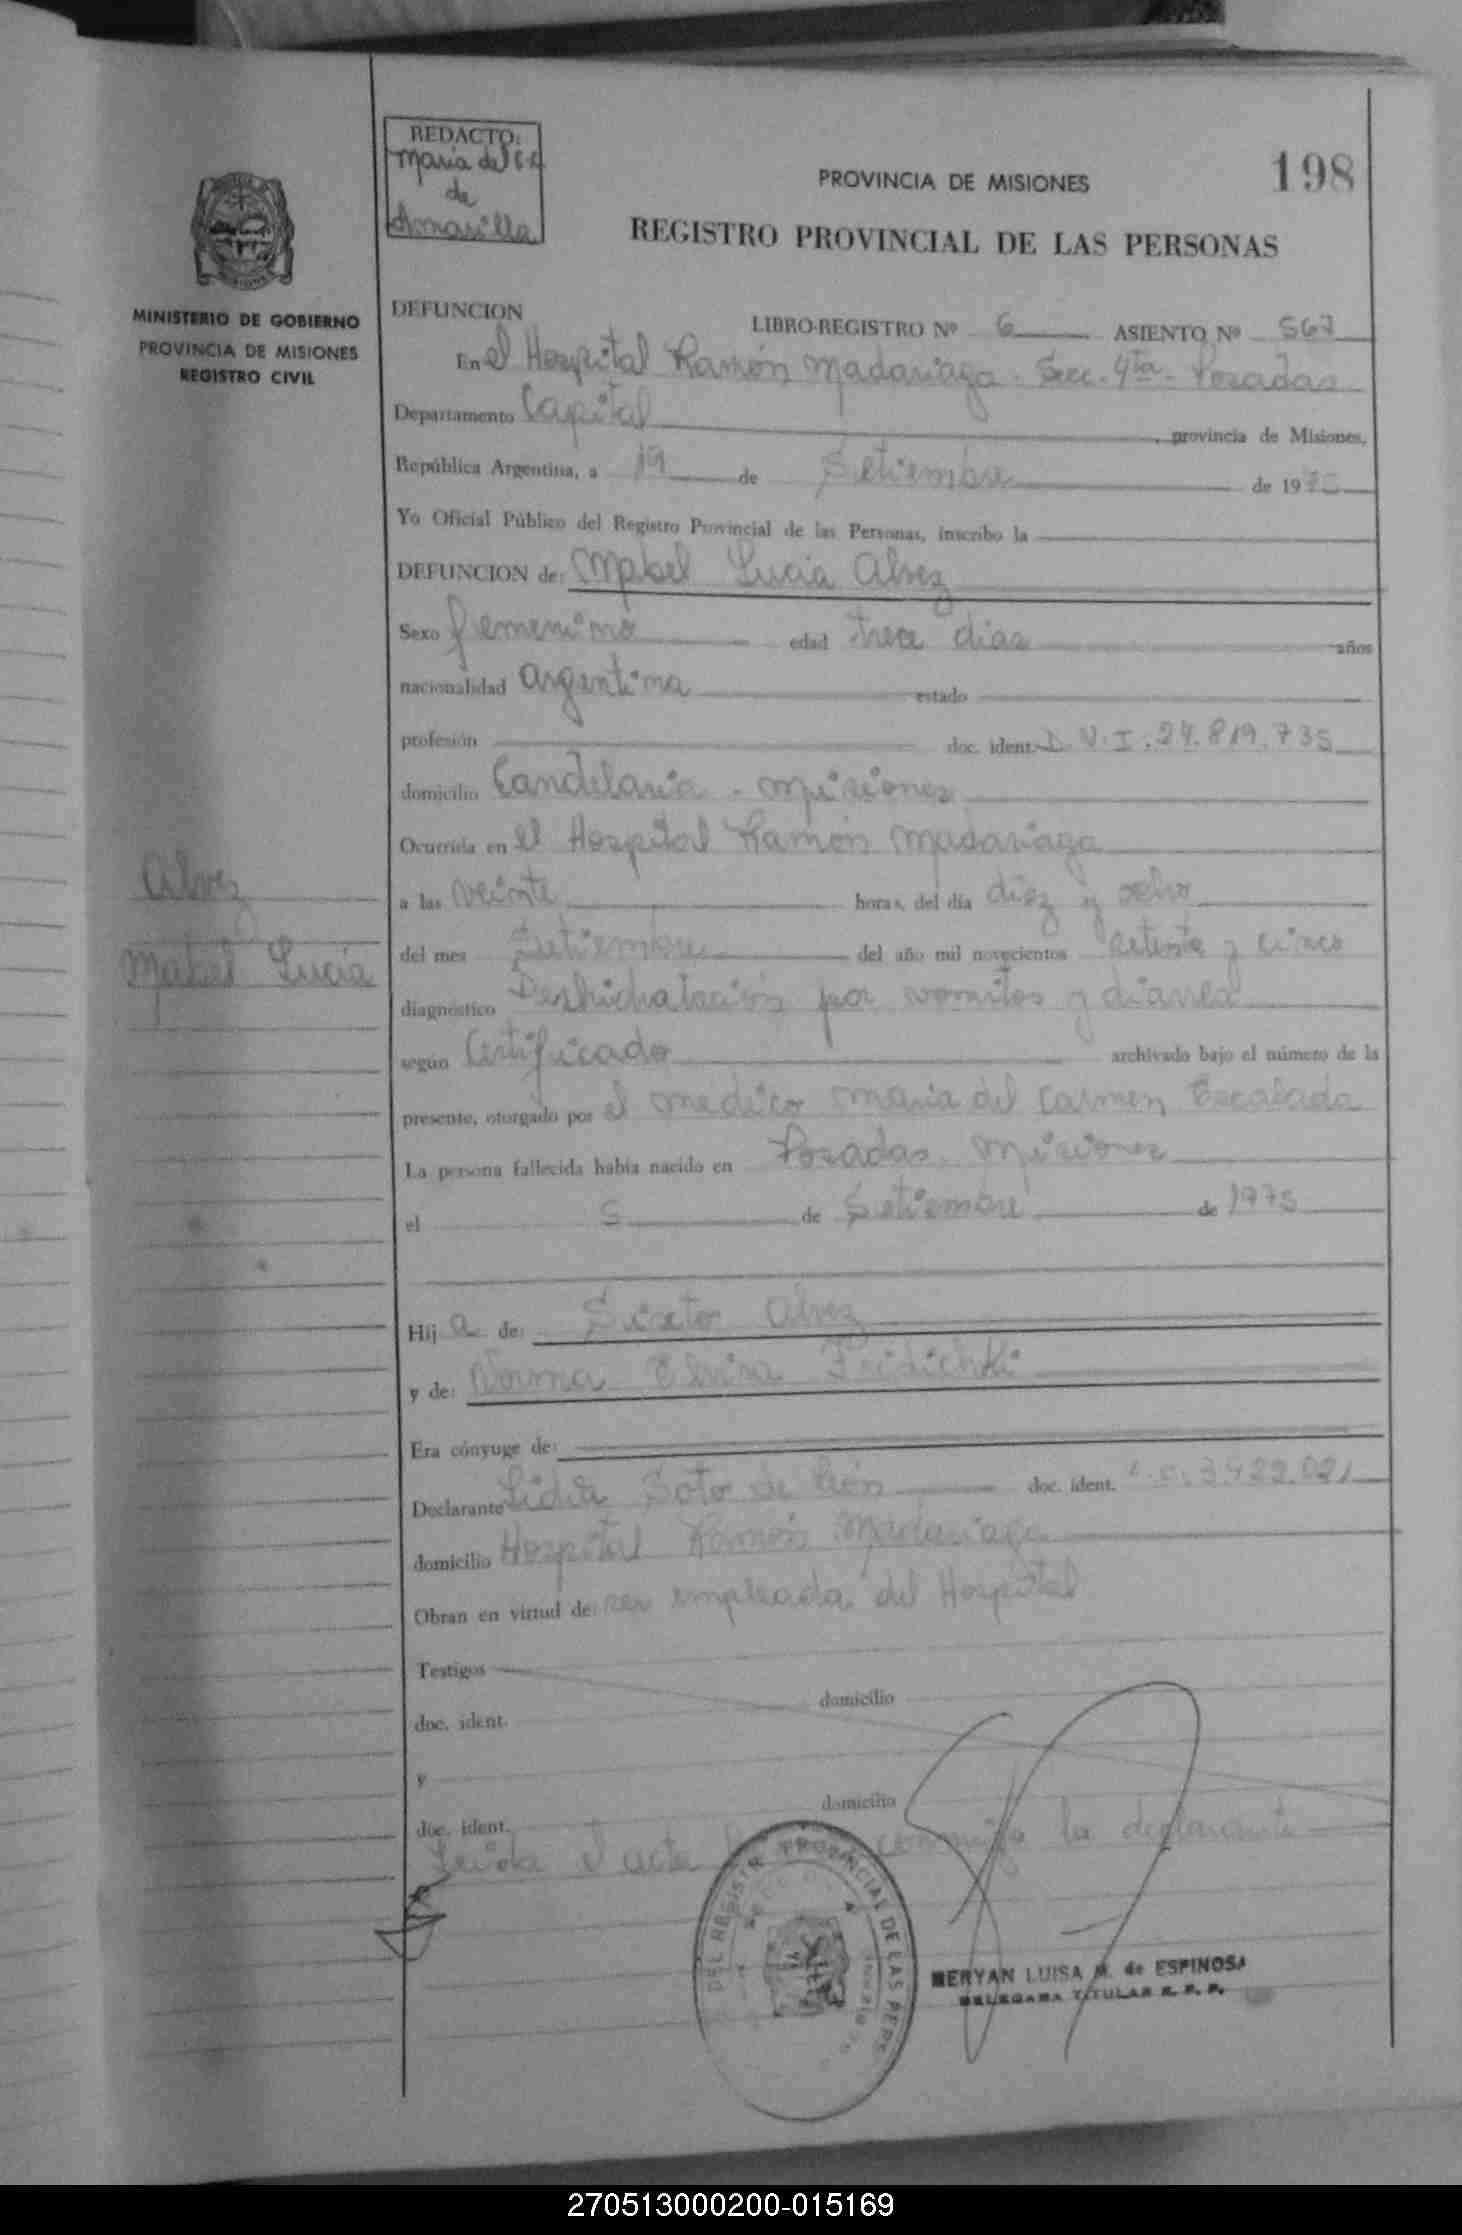 REDACTO:
Maria del C. A.
de
Amarilla
PROVINCIA DE MISIONES
198
REGISTRO PROVINCIAL DE LAS PERSONAS
MINISTERIO DE GOBIERNO
PROVINCIA DE MISIONES
REGISTRO CIVIL
DEFUNCION
LIBRO-REGISTRO Nº 6 ASIENTO Nº 567
En el Hospital Ramón Madariaga. Secc. 4ta. Posadas
Departamento Capital, provincia de Misiones,
República Argentina, a 19 de Setiembre de 1975
Yo Oficial Público del Registro Provincial de las Personas, inscribo la
DEFUNCION de: Mabel Lucia Alvez
Sexo femenino edad trece dias años
nacionalidad argentina estado
profesión doc. ident. D.N.I. 24.819.735
domicilio Candelaria - Misiones
Ocurrida en el Hospital Ramón Madariaga
a las veinte horas, del día diez y ocho
del mes Setiembre del año mil novecientos setenta y cinco
diagnóstico Deshidratación por vomitos y diarrea
según Certificado archivado bajo el número de la
presente, otorgado por el medico Maria del Carmen Escalada
La persona fallecida había nacido en Posadas. Misiones
el 5 de Setiembre de 1975
Hij a de: Sixto Alvez
y de: Norma Elvira Fridichki
Era cónyuge de:
Declarante Lidia Soto de León doc. ident. L.C. 3.422.021
domicilio Hospital Ramón Madariaga
Obran en virtud de: ser empleada del Hospital
Testigos
domicilio
doc. ident.
y
domicilio
doc. ident.
Leida el acta conmigo la declarante
Alvez
Mabel Lucia
DEL REGISTR PROVINCIAL DE LAS PERS
MERYAN LUISA M. de ESPINOSA
DELEGADA TITULAR R. P. P.
270513000200-015169